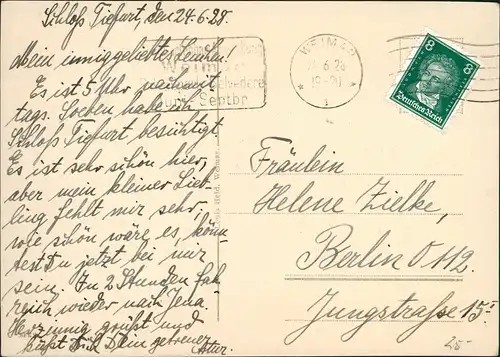 Schloß Tiefurt, den 24.6.28.
Mein inniggeliebtes Lenchen!
Es ist 5 Uhr nachmit-
tags. Soeben habe ich
Schloß Tiefurt besichtigt.
Es ist sehr schön hier,
aber mein kleiner Lieb-
ling fehlt mir sehr,
wie schön wäre es, könn-
test Du jetzt bei mir
sein. In 2 Stunden fah-
re ich wieder nach Jena.
Herzinnig grüßt und
küßt Dich Dein getreuer
Artur.
WEIMAR
Septbr
WEIMAR
6.28
8 8
Deutsches Reich
Held, Weimar.
Fräulein
Helene Zielke,
Berlin O 112.
Jungstraße 15I.